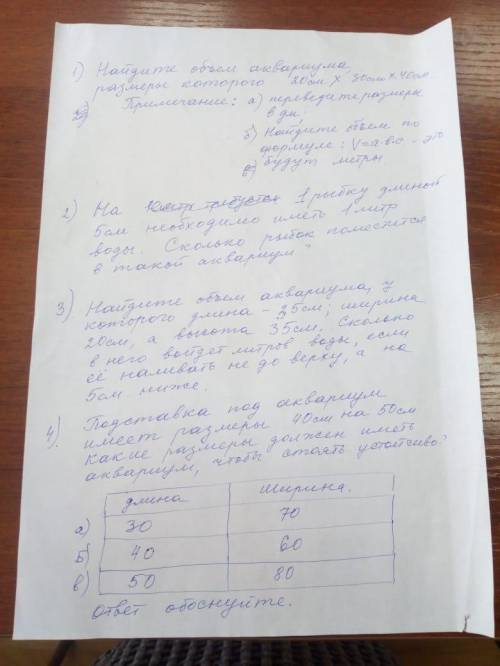 1) Найдите объем аквариума,
размеры которого 20см х 30см х 40см.
Примечание: а) переведите размеры
в дм.
б) Найдите объем по
формуле: V=a·b·c - это
будут литры
2) На 1 рыбку длиной
5см необходимо иметь 1 литр
воды. Сколько рыбок поместится
в такой аквариум?
3) Найдите объем аквариума, у
которого длина - 25см; ширина
20см, а высота 35см. Сколько
в него войдет литров воды, если
её наливать не до верху, а на
5см ниже.
4) Подставка под аквариум
имеет размеры 40см на 50см
Какие размеры должен иметь
аквариум, чтобы стоять устойчиво?
длина ширина.
а) 30 70
б) 40 60
в) 50 80
Ответ обоснуйте.